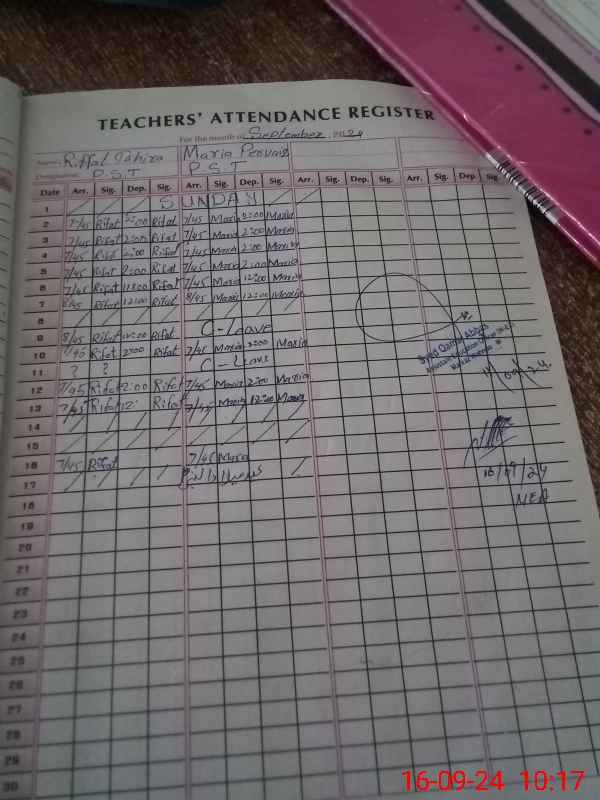 TEACHERS' ATTENDANCE REGISTER
For the month of September 2024
Name: Riffat Tahira Maria Pervais
P.S.T P.S.T
Date Arr. Sig. Dep. Sig. Arr. Sig. Dep. Sig. Arr. Sig. Dep. Sig. Arr. Sig. Dep. Sig.
1 SUNDAY
2 7/45 Rifat 2:00 Rifat 7/45 Maria 2:00 Maria
3 7/45 Rifat 2:00 Rifat 7/45 Maria 2:00 Maria
4 7/45 Rifat 2:00 Rifat 7/45 Maria 2:00 Maria
5 7/45 Rifat 2:00 Rifat 7/45 Maria 2:00 Maria
6 7/45 Rifat 12:00 Rifat 7/45 Maria 12:00 Maria
7 8/45 Rifat 12:00 Rifat 8/45 Maria 12:00 Maria
8
9 8/45 Rifat Rifat C-leave
10 7/45 Rifat 2:00 Rifat 7/45 Maria 2:00 Maria
11 ? ? C-Leave
12 7/45 Rifat 2:00 Rifat 7/45 Maria 2:00 Maria
13 7/45 Rifat 12: Rifat 7/45 Maria 12:00 Maria
14
15
16 7/45 Rifat 7/45 Maria
17
16/9/24
18
NEA
19
20
21
22
23
24
25
26
27
28
29
30
16-09-24 10:17